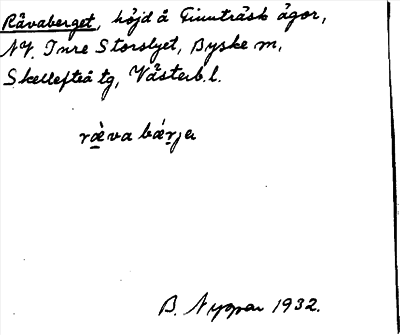 Råvaberget, höjd å Finnträsk ägor,
NV. Inre Storslyet, Byske m,
Skellefteå tg, Västerb. l.
ràva bárja
B. Nygren 1932.